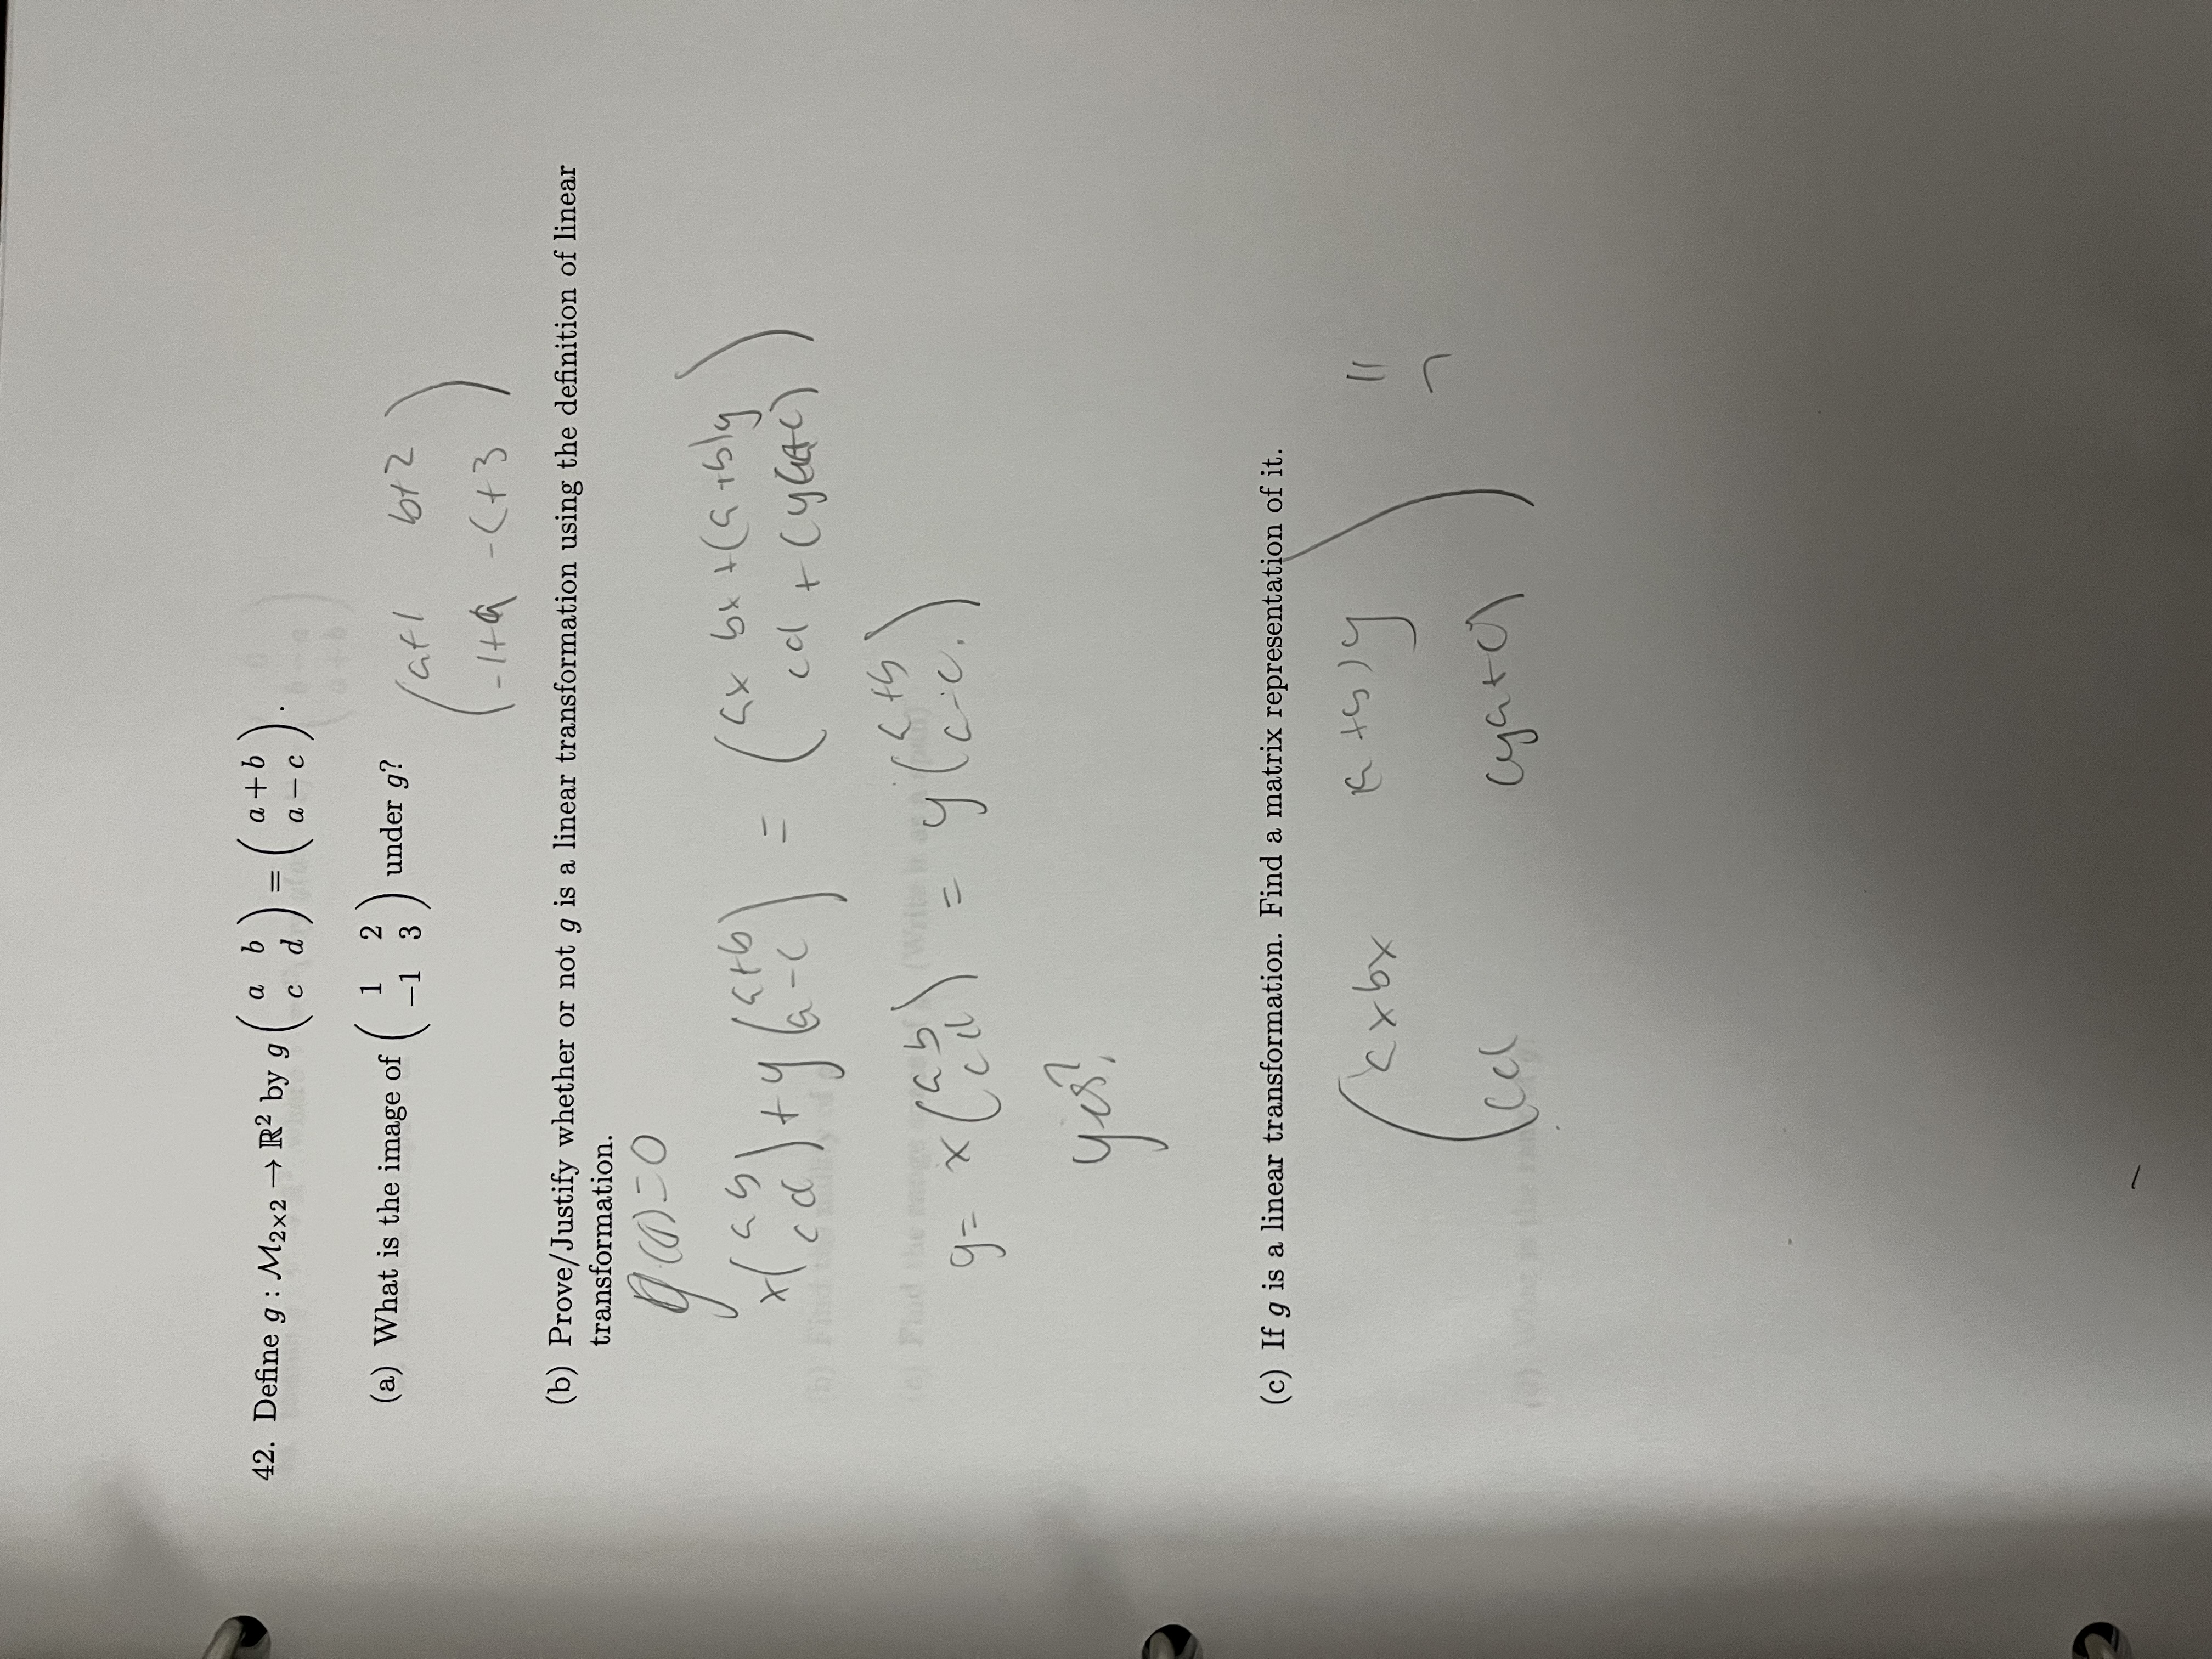 42. Define g : M₂ₓ₂ → ℝ² by g ( a b ; c d ) = ( a + b ; a − c ) .
(a) What is the image of ( 1 2 ; −1 3 ) under g?
( a+1 b+2 ; -1+a -c+3 )
(b) Prove/Justify whether or not g is a linear transformation using the definition of linear
transformation.
g(0)=0
x( a b ; c d ) + y( a+b ; a-c ) = ( ax bx +(a+b)y ; cd + (y(a+c) )
g= x( a b ; c d ) = y( a+b ; c-c. )
yes?
(c) If g is a linear transformation. Find a matrix representation of it.
( axbx (a+b)y ; cd (ya+c) )